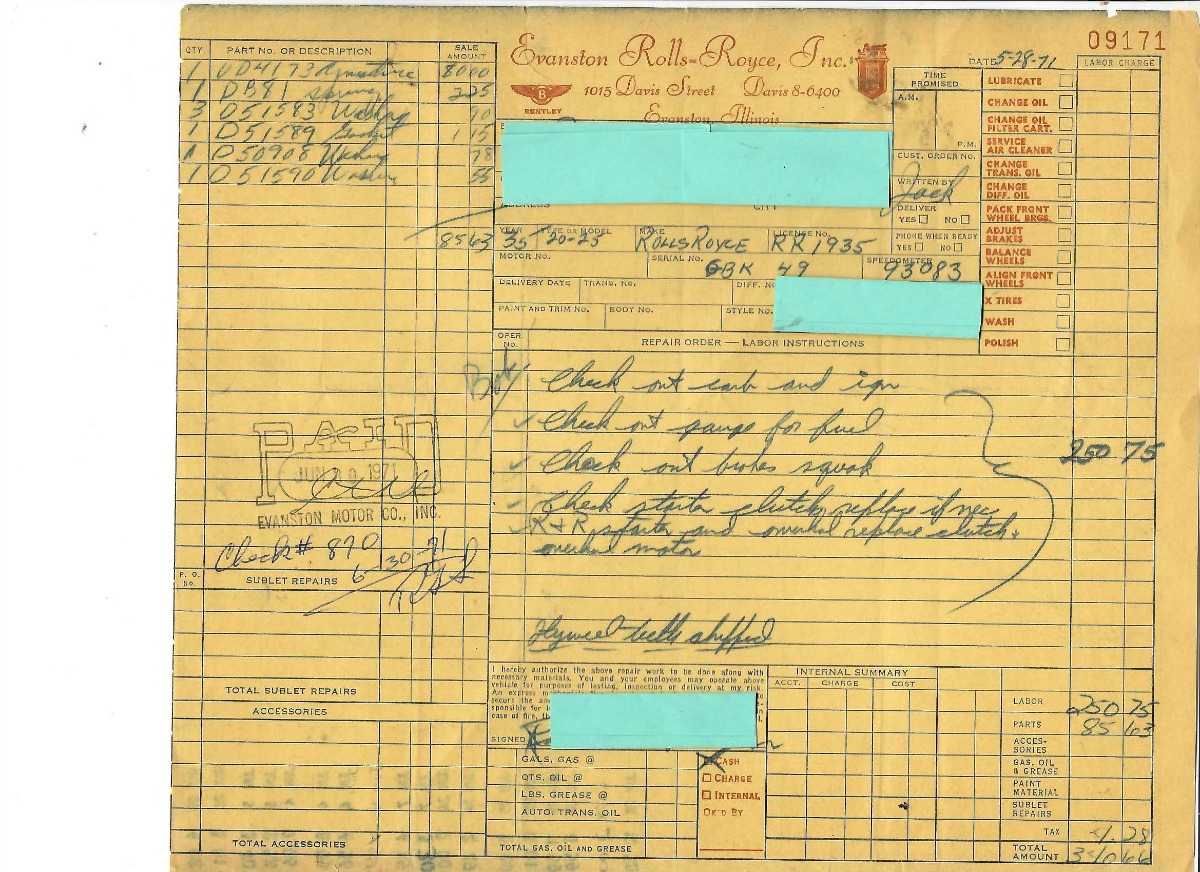 09171
Evanston Rolls-Royce, Inc.
BENTLEY
1015 Davis Street Davis 8-6400
Evanston, Illinois
DATE 5-28-71
QTY. PART NO. OR DESCRIPTION SALE AMOUNT
1 UD4173 Armature 8000
1 DB81 Spring 225
3 D51583 Washer 90
1 D51589 Gasket 1 15
1 D50908 Washer 78
1 D51590 Washer 55
8563
TIME PROMISED
A.M.
P.M.
CUST. ORDER NO.
WRITTEN BY Jack
DELIVER
YES NO
PHONE WHEN READY
YES NO
LABOR CHARGE
LUBRICATE
CHANGE OIL
CHANGE OIL FILTER CART.
SERVICE AIR CLEANER
CHANGE TRANS. OIL
CHANGE DIFF. OIL
PACK FRONT WHEEL BRGS.
ADJUST BRAKES
BALANCE WHEELS
ALIGN FRONT WHEELS
X TIRES
WASH
POLISH
ADDRESS CITY
YEAR TYPE OR MODEL MAKE LICENSE No.
35 20-25 ROLLS ROYCE RR 1935
MOTOR NO. SERIAL NO. GBK 49 SPEEDOMETER 93083
DELIVERY DATE TRANS. NO. DIFF. NO.
PAINT AND TRIM NO. BODY NO. STYLE NO.
OPER. No. REPAIR ORDER — LABOR INSTRUCTIONS
Bob Check out carb and ign
Check out gauge for fuel
Check out brakes squeak
250 75
Check starter clutch, replace if nec
R + R starter and overhaul replace clutch +
overhaul motor
Flywheel teeth chipped
PAID
JUN 30 1971
EVANSTON MOTOR CO., INC.
Check # 870
6-30-71
P. O. No. SUBLET REPAIRS
TOTAL SUBLET REPAIRS
ACCESSORIES
TOTAL ACCESSORIES
I hereby authorize the above repair work to be done along with
necessary materials. You and your employees may operate above
vehicle for purposes of testing, inspection or delivery at my risk.
An express
secure the
sponsible for
case of fire,
SIGNED
GALS. GAS @
QTS. OIL @
LBS. GREASE @
AUTO. TRANS. OIL
TOTAL GAS, OIL AND GREASE
CASH
CHARGE
INTERNAL
OK'D BY
INTERNAL SUMMARY
ACCT. CHARGE COST
LABOR 250 75
PARTS 85 63
ACCES-SORIES
GAS, OIL & GREASE
PAINT MATERIAL
SUBLET REPAIRS
TAX 4.28
TOTAL AMOUNT 340 66